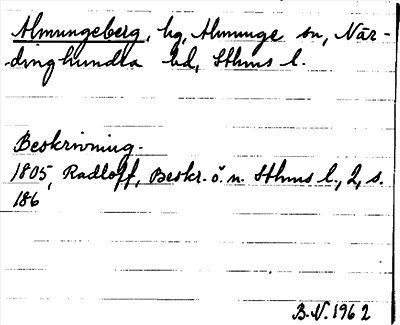 Almungeberg, hg, Almunge sn, När-
dinghundra hd, Sthms l.
Beskrivning.
1805, Radloff, Beskr. ö. n. Sthms l., 2, s.
186
B.N. 1962